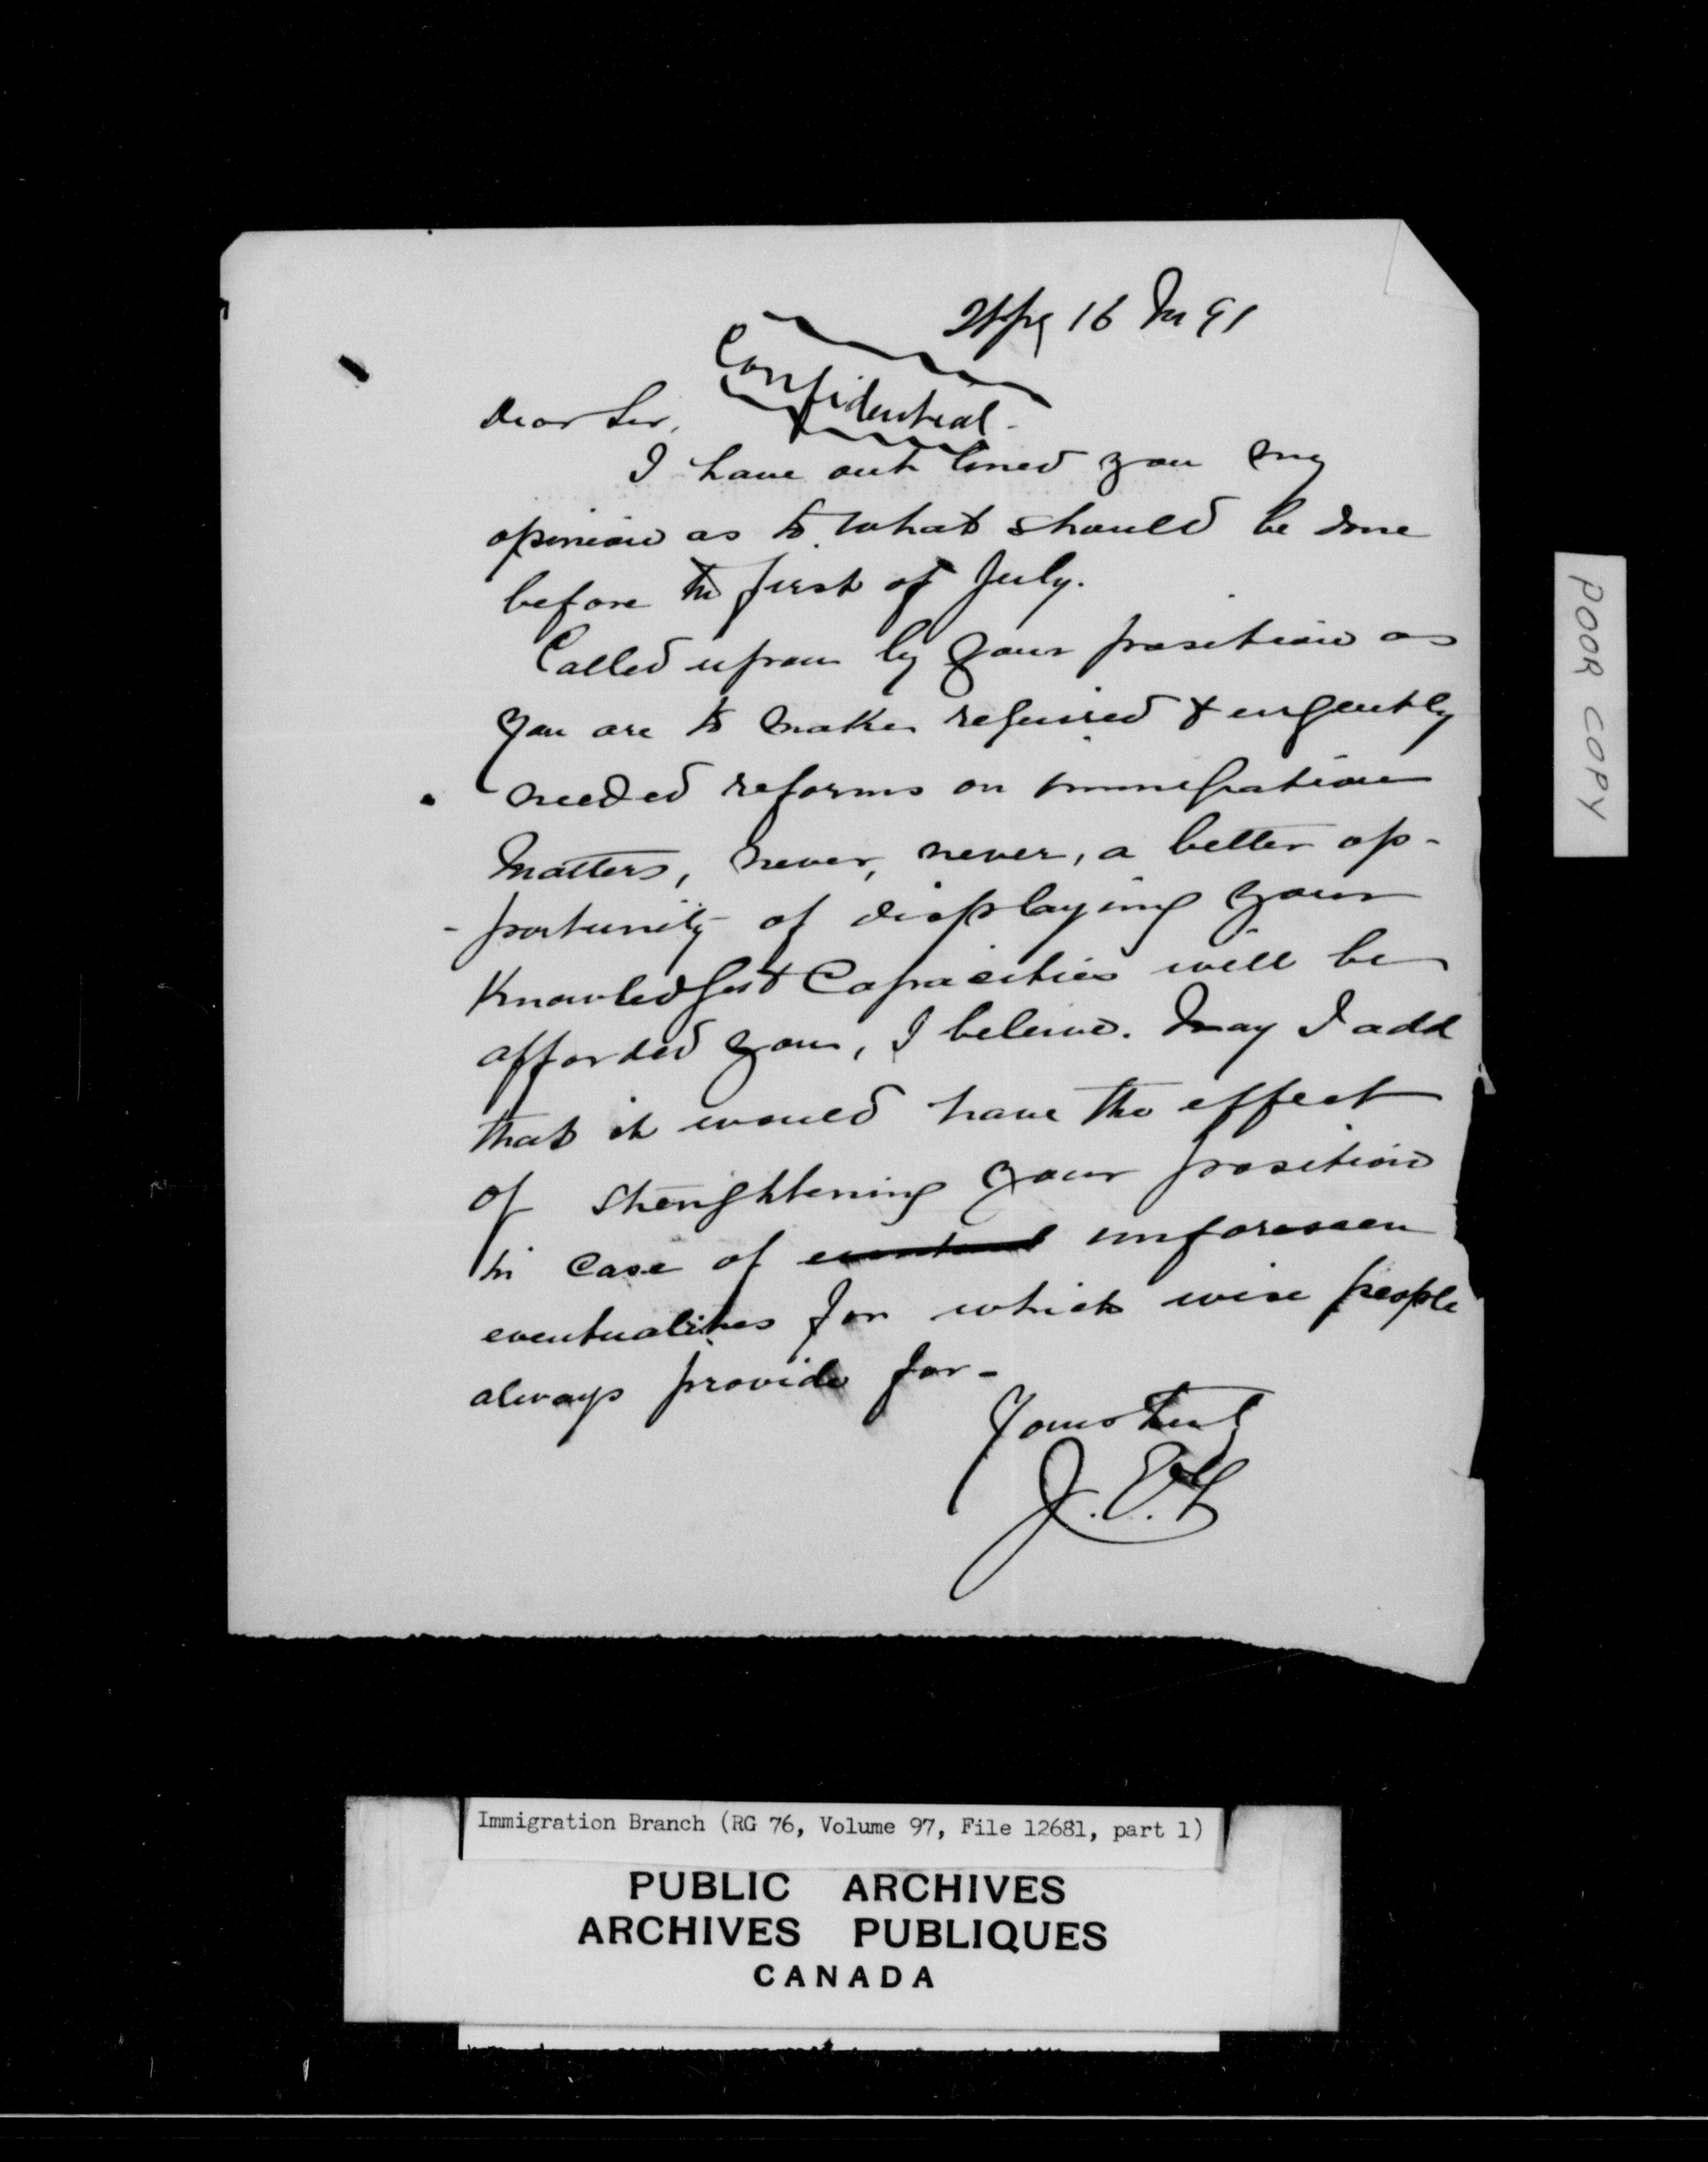 Wpg 16 Jn 91
Confidential -
Dear Sir,
I have out lined you my
opinion as to what should be done
before the first of July.
Called upon by your position as
you are to make required & urgently
needed reforms on immigration
matters, never, never, a better op-
-portunity of displaying your
Knowledge & Capacities will be
afforded you, I beleive. May I add
that it would have the effect
of strenghtening your position
in case of unforeseen
eventualities for which wise people
always provide for -
Yours truly
J.E.T
POOR COPY
Immigration Branch (RG 76, Volume 97, File 12681, part 1)
PUBLIC ARCHIVES
ARCHIVES PUBLIQUES
CANADA